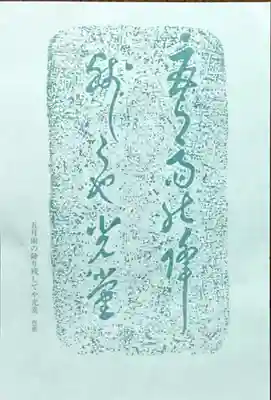 五月雨能降
残してや光堂
五月雨の降り残してや光堂 芭蕉